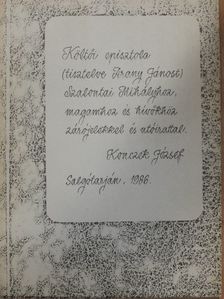 Költői episztola
(tisztelve Arany Jánost)
Szabontai Mihályhoz,
magamhoz és hívőkhöz
zárójelekkel és utóirattal.
Konczek József
Salgótarján, 1986.